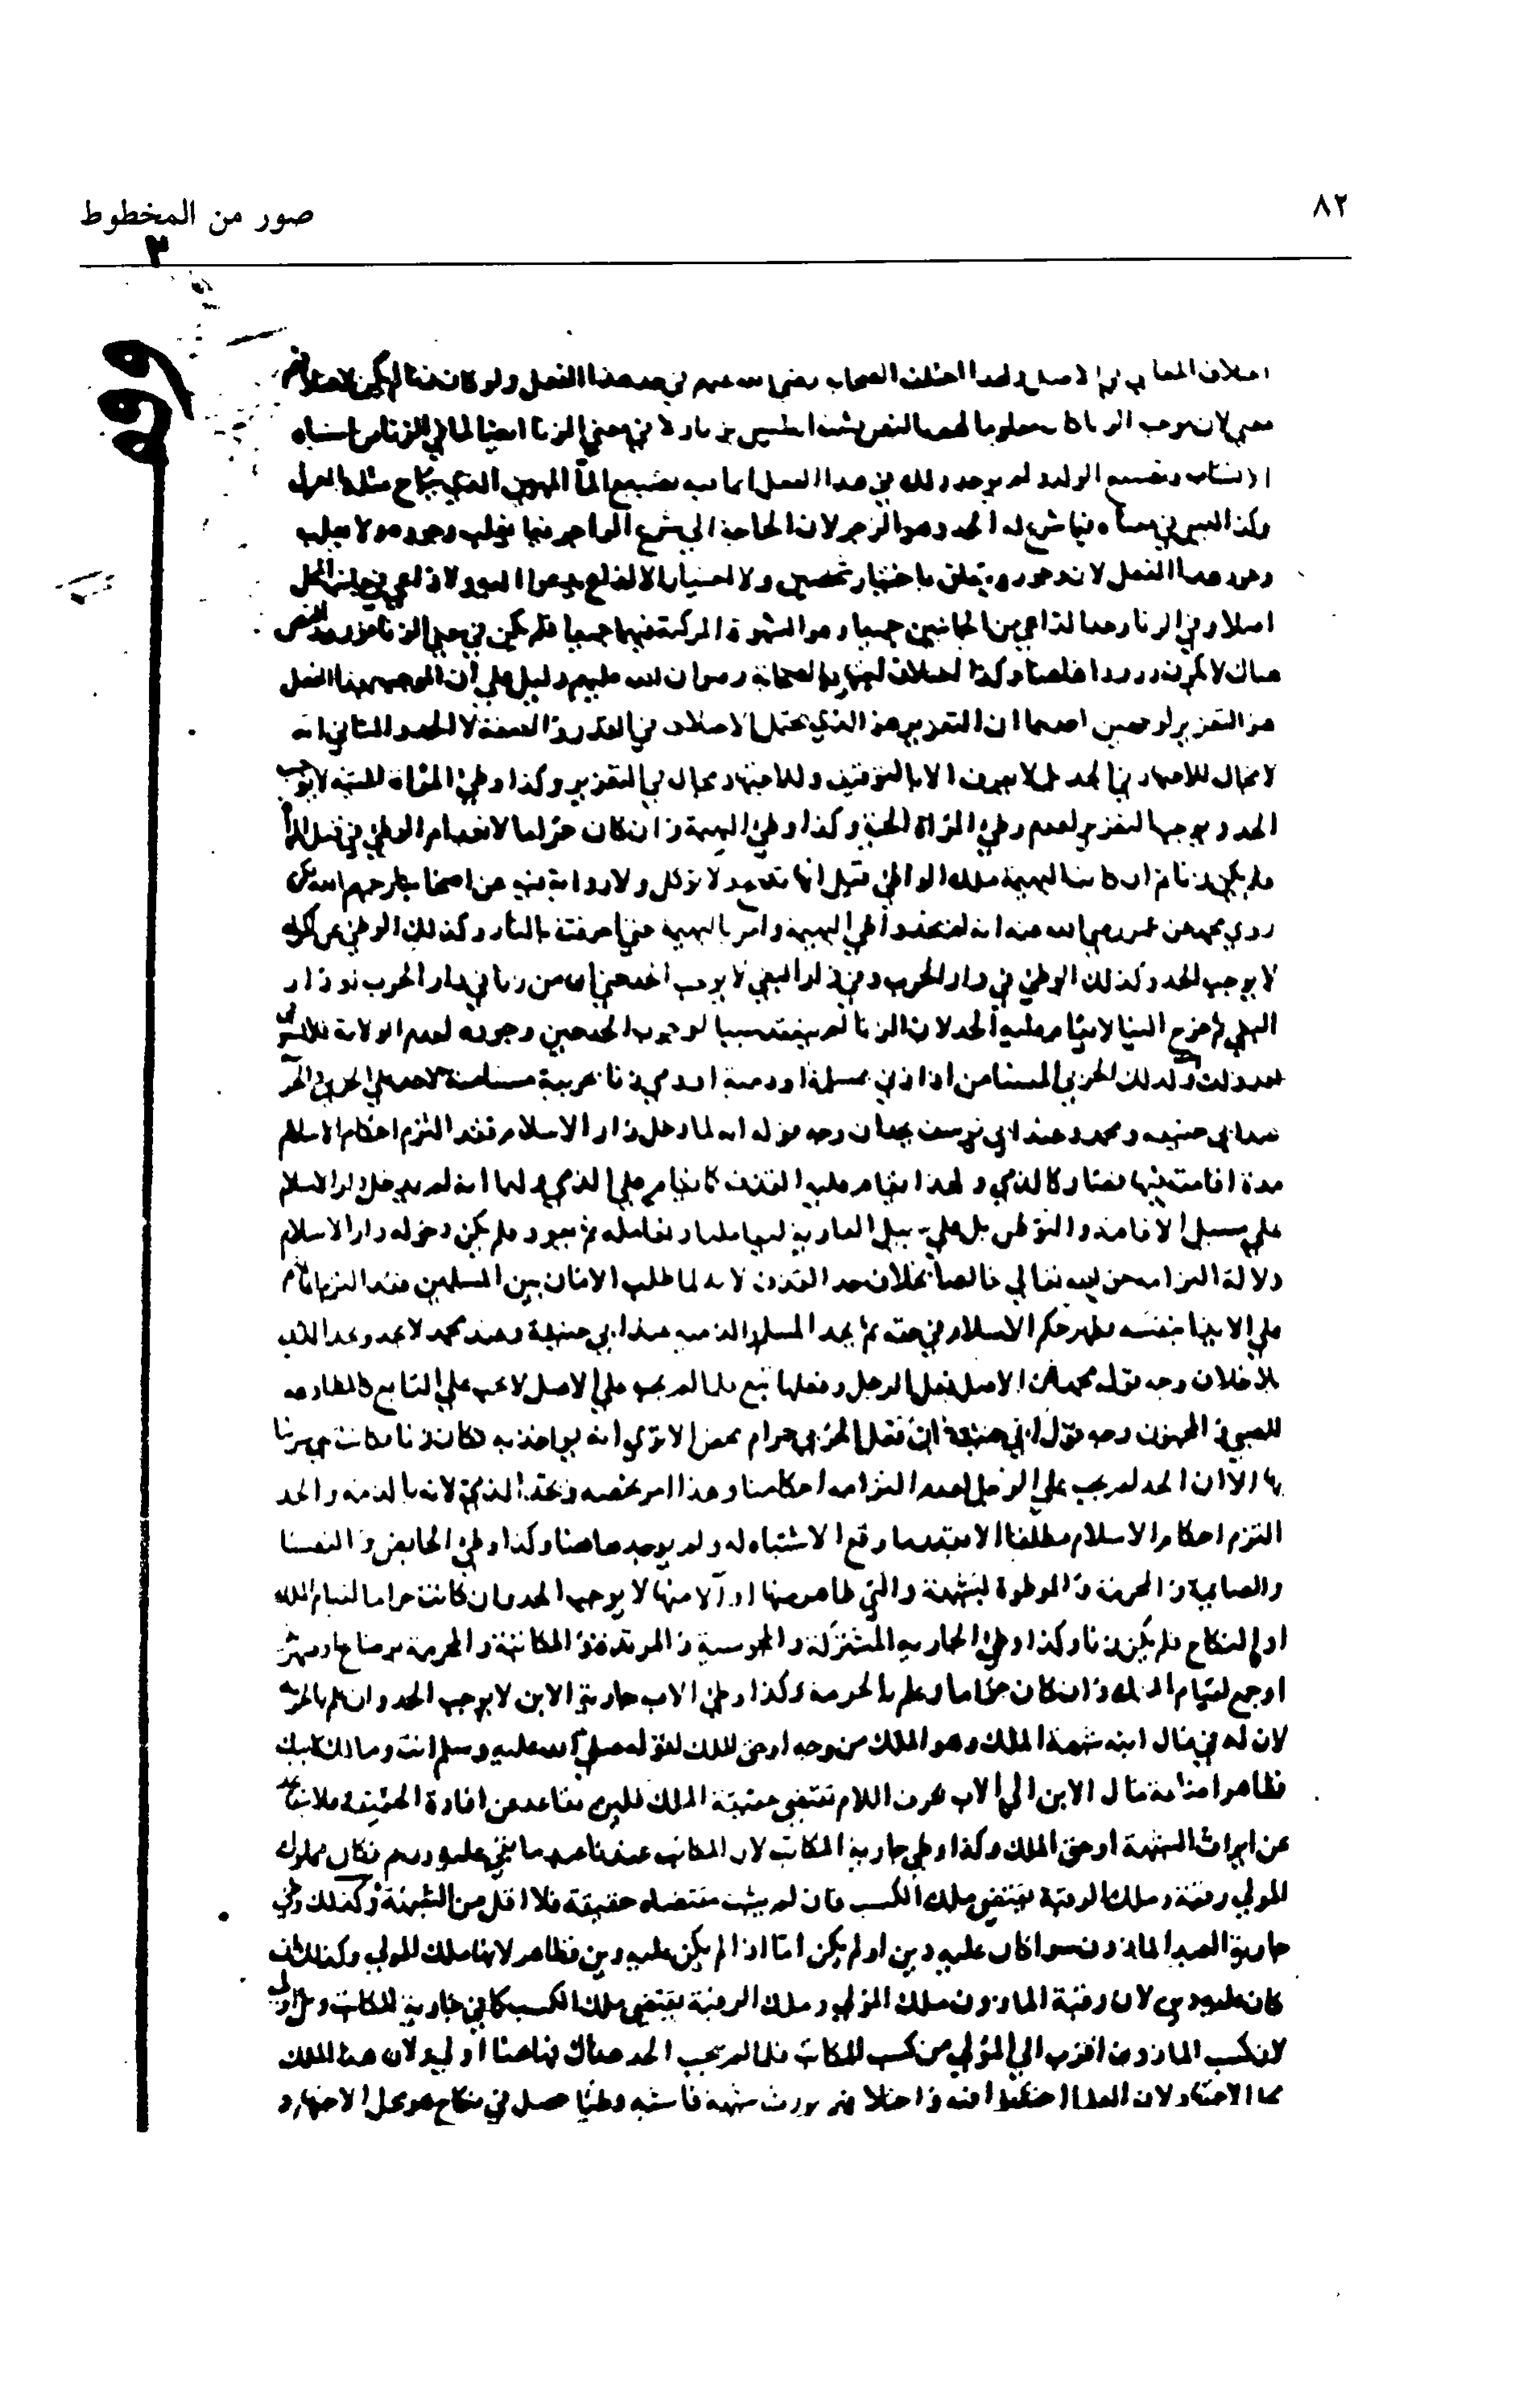 ٨٢
صور من المخطوط
٣
وقف
اختلاف المعاني في الاصل ولهذا اختلف الصحابة رضي الله عنهم في حد هذا الفعل ولو كان هذا لم يكن لاختلافهم
معنى لان موجب الزنا كان معلوما لهم بالنص فثبت انه ليس بزنا ولا في معنى الزنا ايضا لما في الزنا من اشتباه
الانساب وتضييع الولد ولم يوجد ذلك في هذا الفعل انما فيه تضييع الماء المهين الذي يباح مثله بالعزل
وكذا ليس في معناه فيما شرع له الحد وهو الزجر لان الحاجة الى شرع الزاجر فيما يغلب وجوده ولا يغلب
وجود هذا الفعل لان وجوده يتعلق باختيار شخصين ولا اختيار الا لداع يدعو اليه ولا داعي في جانب المحل
اصلا وفي الزنا وجد الداعي من الجانبين جميعا وهو الشهوة المركبة فيهما جميعا فلم يكن في معنى الزنا فورود النص
هناك لا يكون ورودا هاهنا وكذا اختلاف اجتهاد الصحابة رضوان الله عليهم دليل على ان الموجب بهذا الفعل
هو التعزير لوجهين احدهما ان التعزير هو الذي يحتمل الاختلاف في القدر والصفة لا الحد والثاني انه
لا مجال للاجتهاد في الحد بل لا يعرف الا بالتوقيف وللاجتهاد مجال في التعزير وكذا وطئ المراة الميتة لا يوجب
الحد ويوجب التعزير لعدم وطئ المراة الحية وكذا وطئ البهيمة وان كان حراما لانعدام الوطئ في قبل المراة
فلم يكن زنا ثم ان كانت البهيمة ملك الواطئ قيل انها تذبح ولا تؤكل ولا رواية فيه عن اصحابنا رحمهم الله لكن
روى محمد عن عمر رضي الله عنه انه لم يحد واطئ البهيمة وامر بالبهيمة حتى احرقت بالنار وكذلك الوطئ عن اكراه
لا يوجب الحد وكذلك الوطئ في دار الحرب وفي دار البغي لا يوجب الحد حتى ان من زنا في دار الحرب او دار
البغي ثم خرج الينا لا يقام عليه الحد لان الزنا لم ينعقد سببا لوجوب الحد حين وجوده لعدم الولاية فلا يستوفى
بعد ذلك وكذلك الحربي المستامن اذا زنى بمسلمة او ذمية او ذمي زنا بحربية مستامنة لا حد على الحربي والحربية
عند ابي حنيفة ومحمد وعند ابي يوسف يحدان وجه قوله انه لما دخل دار الاسلام فقد التزم احكام الاسلام
مدة اقامته فيها فصار كالذمي ولهذا يقام عليه حد القذف كما يقام على الذمي ولهما انه لم يدخل دار الاسلام
على سبيل الاقامة والتوطن بل على سبيل العارية ليعاملنا ونعامله ثم يعود فلم يكن دخوله دار الاسلام
دلالة التزامه حق الله تعالى خالصا بخلاف حد القذف لانه لما طلب الامان من المسلمين فقد التزم امانهم
على الايذاء بنفسه وظهر حكم الاسلام في حقه ثم يحد المسلم والذمية عند ابي حنيفة وعند محمد لا يحد ويحد الذمي
بلا خلاف وجه قول محمد ان الاصل فعل الرجل وفعلها تبع فلما لم يجب على الاصل لا يجب على التابع كالمطاوعة
للصبي والمجنون وجه قول ابي حنيفة ان فعل الحربي حرام محض الا ترى انه يؤاخذ به فكان زنا فكانت هي مزنيا
بها الا ان الحد لم يجب على الرجل لعدم التزامه احكامنا وهذا امر يخصه ويحد الذمي لانه بالذمة والحد
التزم احكام الاسلام مطلقا الا بقدر ما وقع الاستثناء له ولم يوجد هاهنا وكذا وطئ الحائض والنفساء
والصائمة والمحرمة والموطوءة بشبهة والتي ظاهر منها او آلا منها لا يوجب الحد وان كانت حراما لقيام الملك
او النكاح فلم يكن زنا وكذا وطئ الجارية المشتركة والمجوسية والمرتدة والمكاتبة والمحرمة برضاع او صهرية
او جمع لقيام الملك وان كان حراما وعلم بالحرمة وكذا وطئ الاب جارية الابن لا يوجب الحد وان علم بالحرمة
لان له في مال ابنه شبهة الملك وهو الملك من وجه او حق الملك لقوله صلى الله عليه وسلم انت ومالك لابيك
فظاهر اضافة مال الابن الى الاب بحرف اللام تقتضي حقيقة الملك فلئن تقاعد عن افادة الحقيقة فلا يتقاعد
عن ايراث الشبهة او حق الملك وكذا وطئ جارية المكاتب لان المكاتب عندنا عبد ما بقي عليه درهم فكان مملوك
المولى رقبة وملك الرقبة يقتضي ملك الكسب فان لم يثبت مقتضاه حقيقة فلا اقل من الشبهة وكذلك وطئ
جارية العبد الماذون سواء كان عليه دين او لم يكن اما اذا لم يكن عليه دين فظاهر لانها ملك المولى وكذلك ان
كان عليه دين لان رقبة الماذون ملك المولى وملك الرقبة يقتضي ملك الكسب كما في جارية المكاتب وبل اولى
لان كسب الماذون اقرب الى المولى من كسب المكاتب فلما لم يجب الحد هناك فهاهنا اولى ولان هذا الملك
محل الاجتهاد لان العلماء اختلفوا فيه واختلافهم يورث شبهة فاشبه وطئا حصل في نكاح هو محل الاجتهاد و